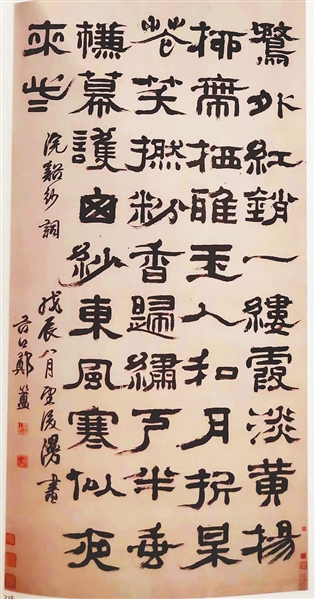 鶩外紅銷一縷霞淡黃揚
柳帶栖鴉玉人和月折呆
花笑撚粉香歸繡戶半垂
槏幕護囱紗東風寒似夜
來些
浣谿紗詞 戊辰八月望後漫書
谷口鄭簠
218